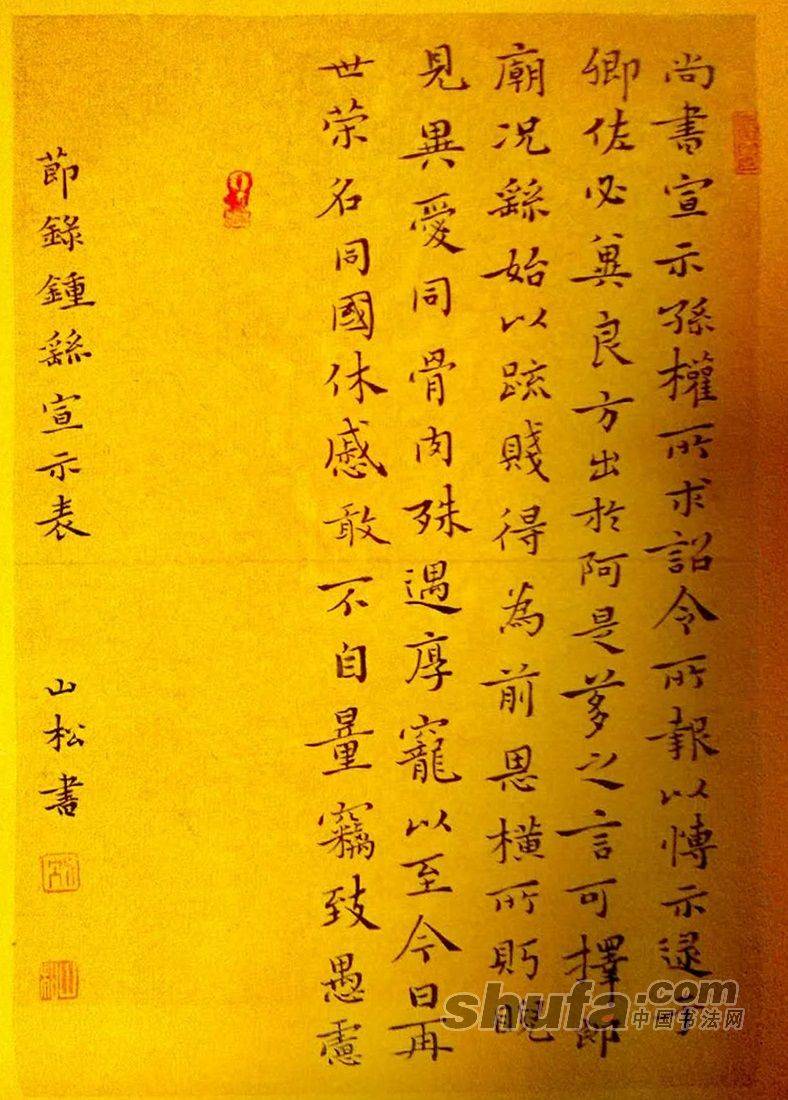 尚書宣示孫權所求詔令所報以博示逮于
卿佐必冀良方出於阿是芻之言可擇郎
廟况繇始以疏賤得為前恩橫所眄睨
見異愛同骨肉殊遇厚寵以至今日再
世荣名同國休慼敢不自量竊致愚慮
節錄鍾繇宣示表 山松書
shufa.com
中国书法网